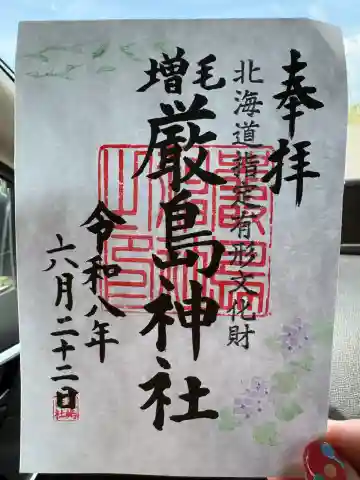 奉拝
北海道指定有形文化財
増毛
厳島神社
令和八年
六月二十二日